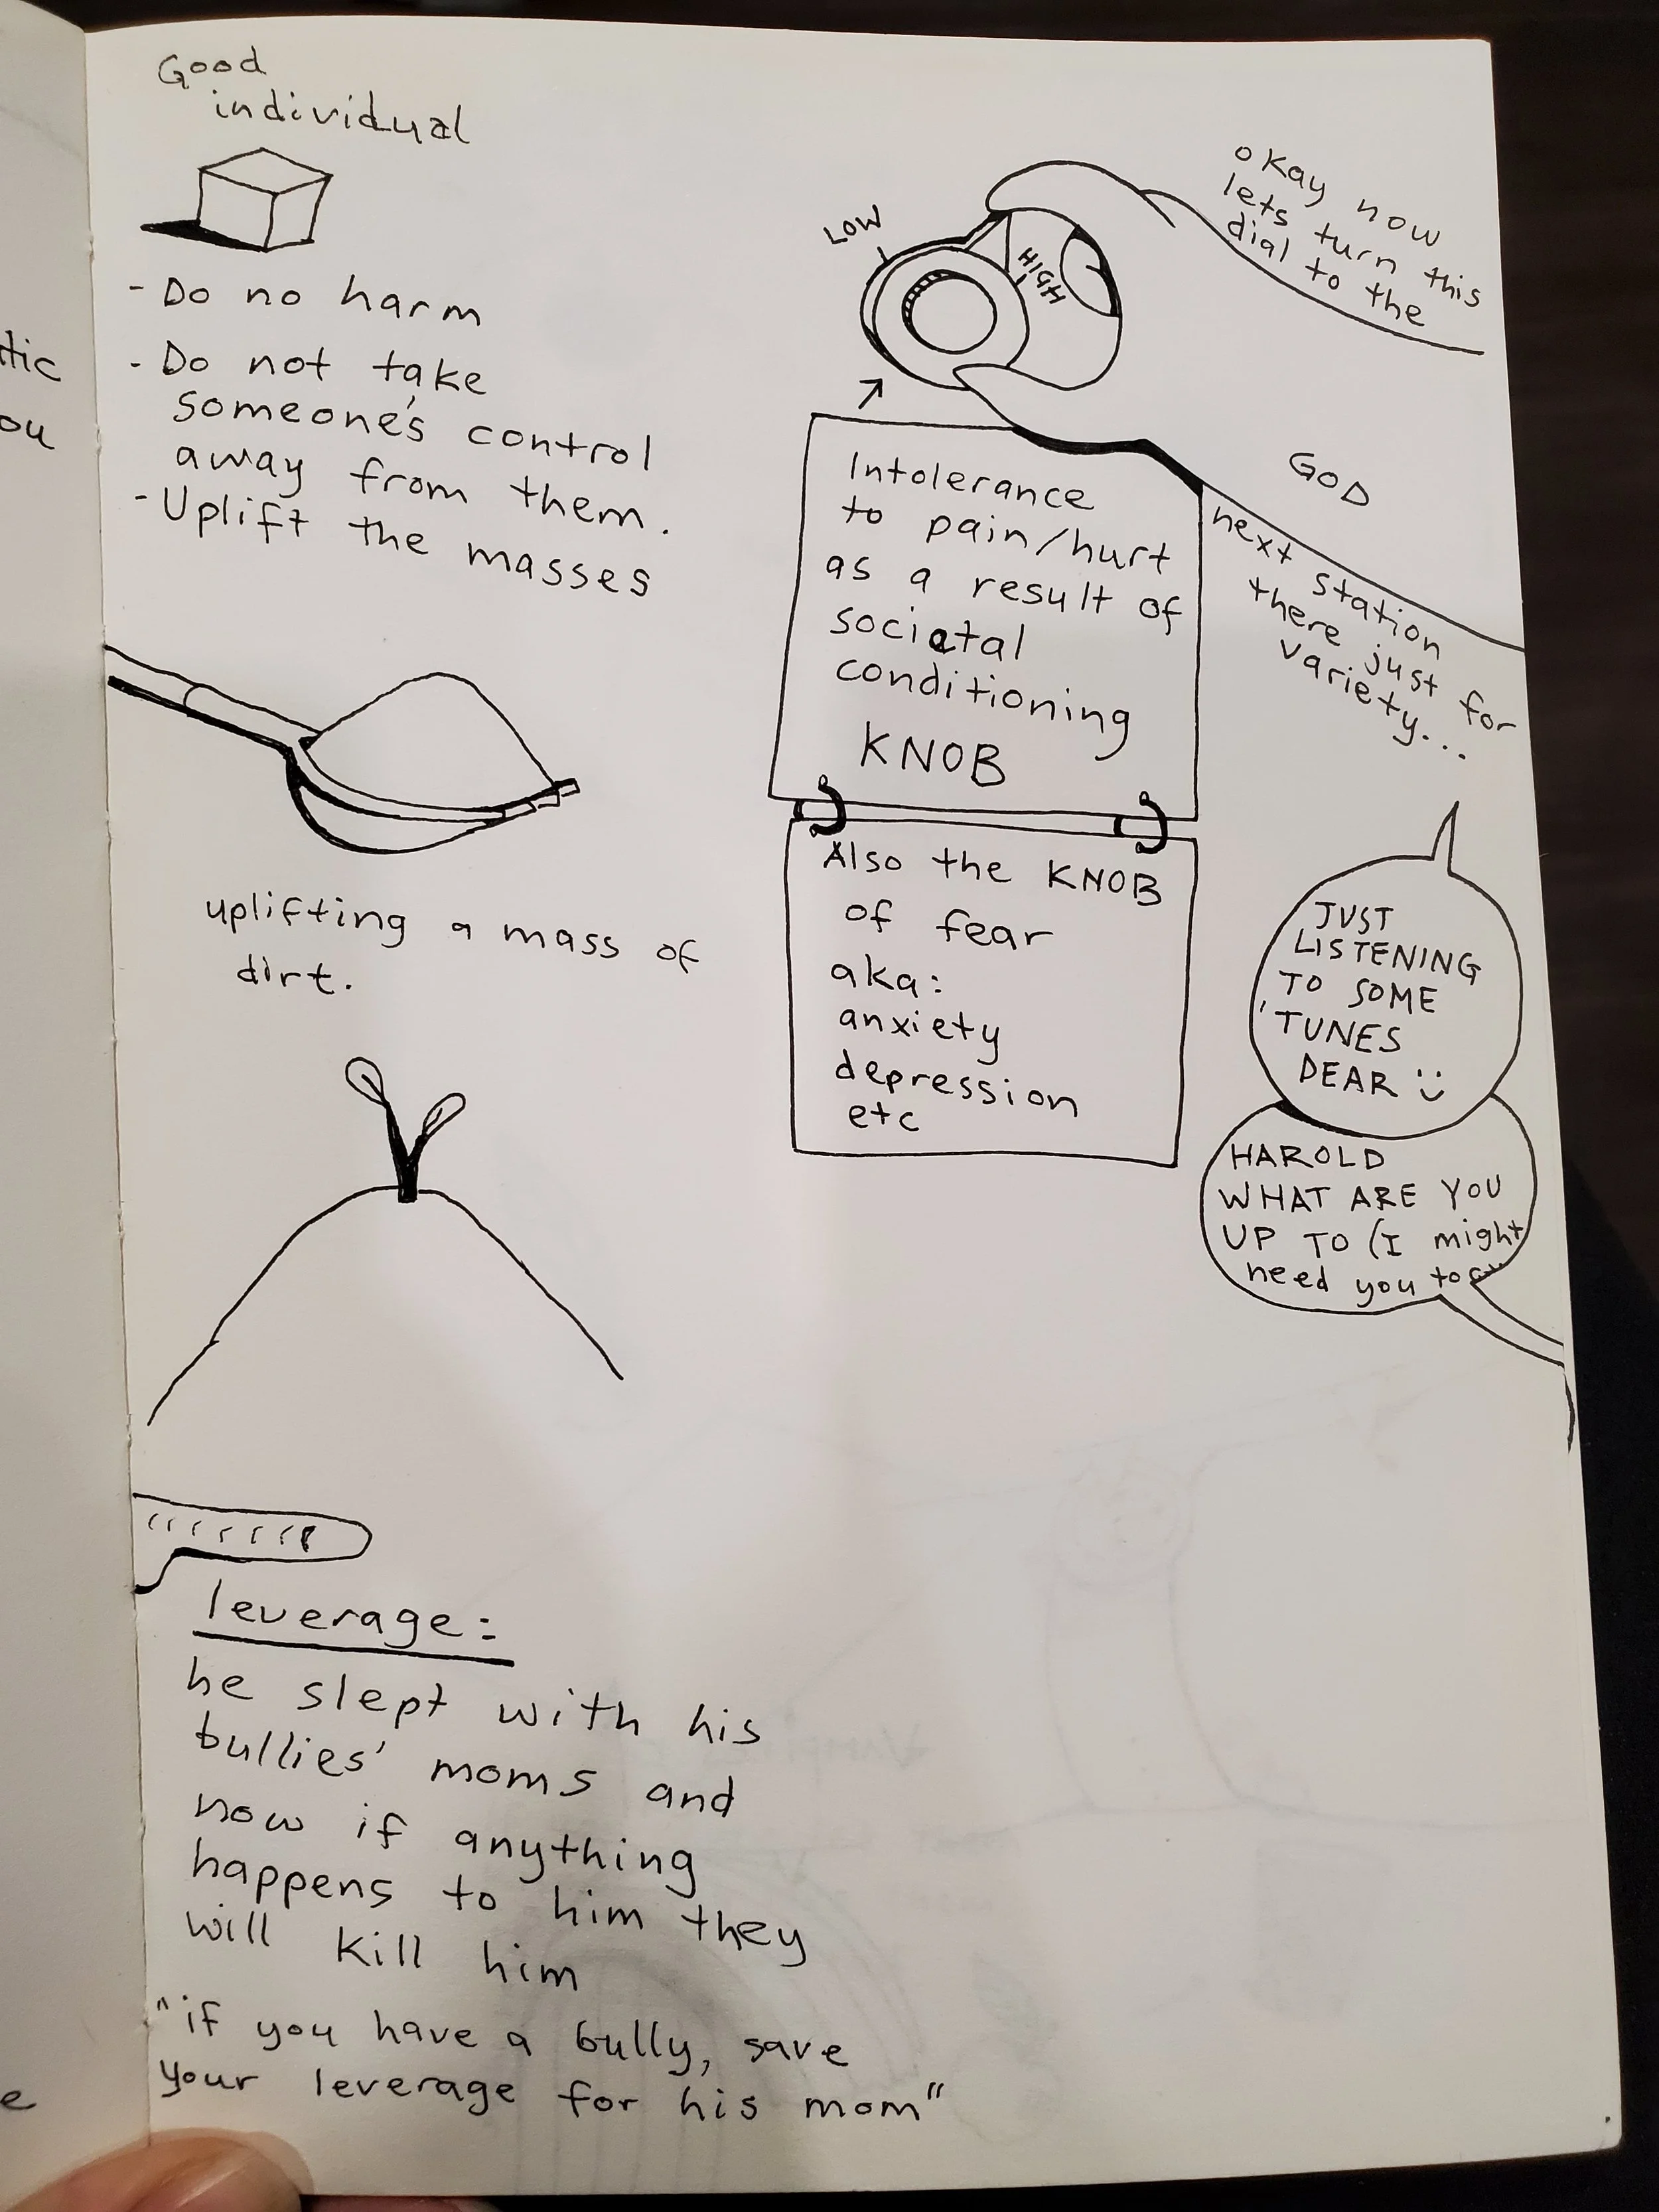 Good
individual
- Do no harm
- Do not take
someone's control
away from them.
- Uplift the masses
uplifting a mass of
dirt.
leverage:
he slept with his
bullies' moms and
now if anything
happens to him they
will kill him
"if you have a bully, save
your leverage for his mom"
LOW
HIGH
okay now
lets turn this
dial to the
GOD
next station
there just for
variety...
Intolerance
to pain/hurt
as a result of
societal
conditioning
KNOB
Also the KNOB
of fear
aka:
anxiety
depression
etc
JUST
LISTENING
TO SOME
'TUNES
DEAR :)
HAROLD
WHAT ARE YOU
UP TO (I might
need you to
tic
ou
e